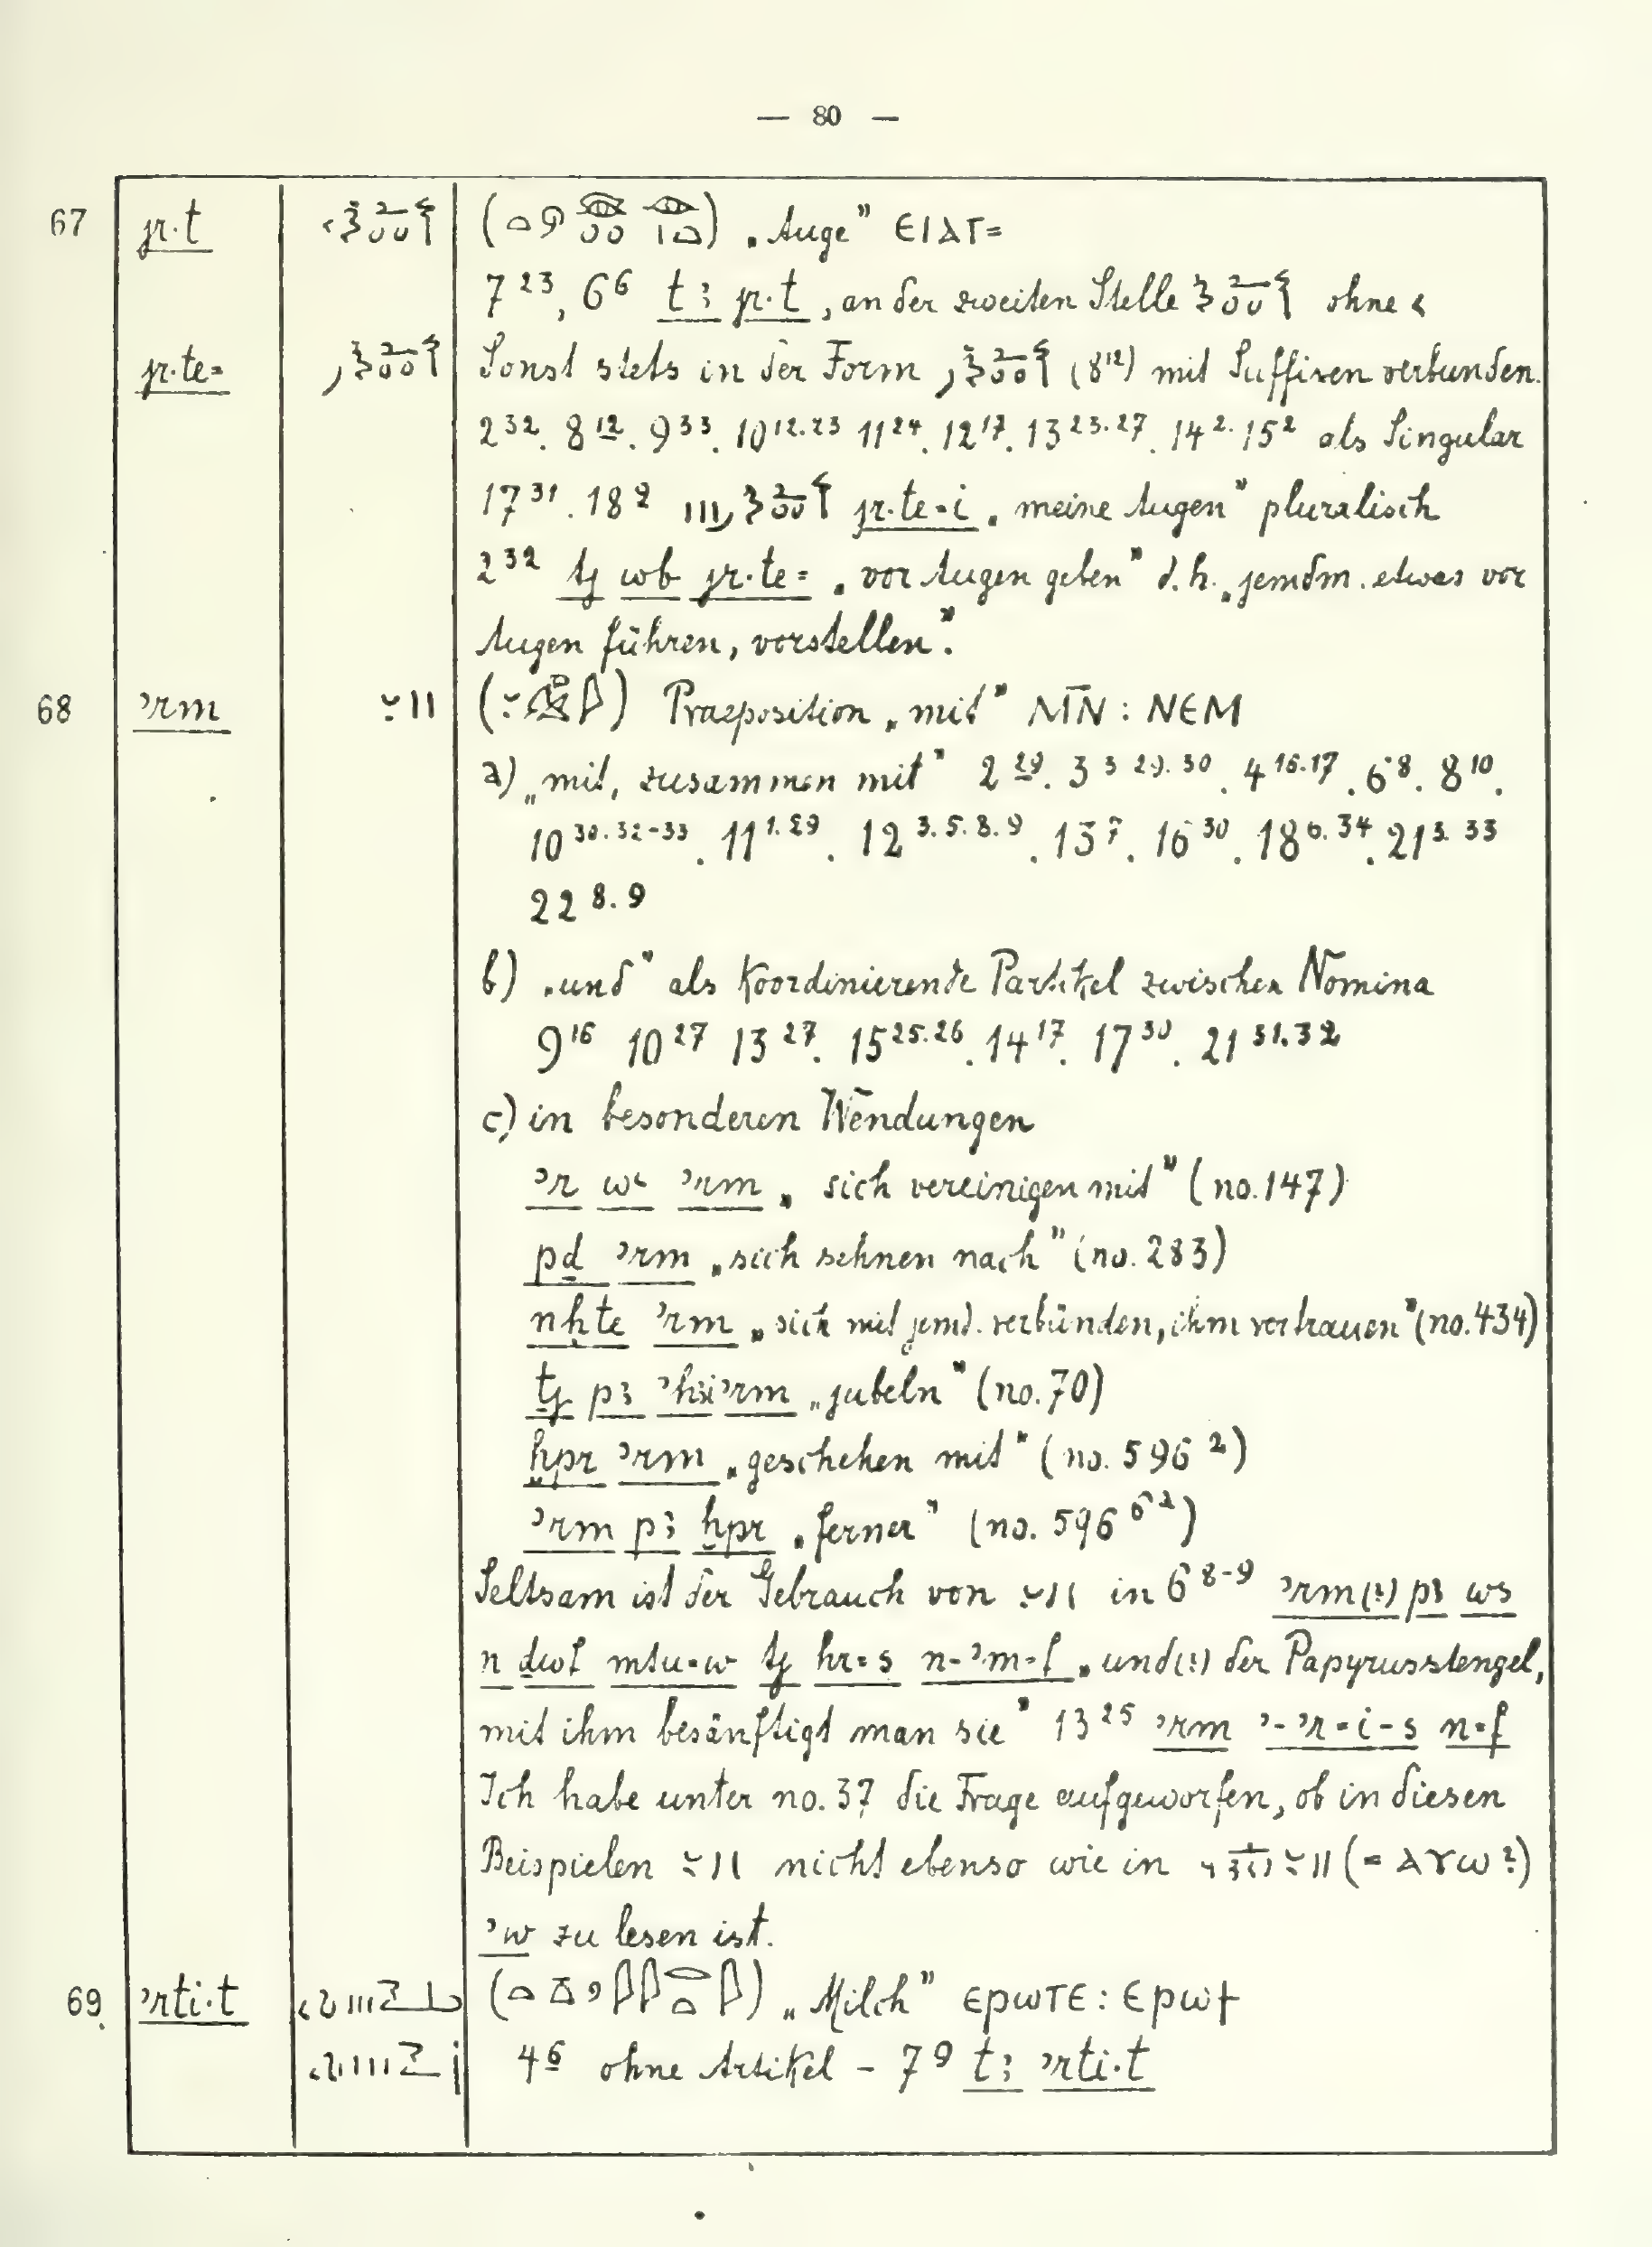 — 80 —
67 jr·t ( ) „Auge” ЄΙΑΤ=
7 23, 6 6 tꜣ jr·t, an der zweiten Stelle ohne
jr·te= Sonst stets in der Form (8 12) mit Suffixen verbunden.
2 32. 8 12. 9 33. 10 12.23 11 24. 12 17. 13 23.27. 14 2. 15 2 als Singular
17 31. 18 2 jr·te=i „meine Augen” pluralisch
2 32 tj wb jr·te= „vor Augen geben” d.h. „jemdm. etwas vor
Augen führen, vorstellen”.
68 ʾrm ( ) Praeposition „mit” ⲘN̄ : ⲚЄⲘ
a) „mit, zusammen mit” 2 29. 3 3 29.30. 4 16.17. 6 8. 8 10.
10 30.32-33. 11 1.29. 12 3.5.8.9. 15 7. 16 30. 18 6.34. 21 3.33
22 8.9
b) „und” als Koordinierende Partikel zwischen Nomina
9 16 10 27 13 27. 15 25.26. 14 17. 17 30. 21 31.32
c) in besonderen Wendungen
ʾr wꜥ ʾrm „sich vereinigen mit” (no. 147)
pd ʾrm „sich sehnen nach” (no. 283)
nḥte ʾrm „sich mit jemd. verbünden, ihm vertrauen” (no. 434)
tj pꜣ ʾrm „jubeln” (no. 70)
ḫpr ʾrm „geschehen mit” (no. 596 2)
ʾrm pꜣ ḫpr „ferner” (no. 596 6 2)
Seltsam ist der Gebrauch von in 6 8-9 ʾrm(?) pꜣ ws
n ḏwf mtu=w tj hr=s n-ʾm=f „und(?) der Papyrusstengel,
mit ihm besänftigt man sie” 13 25 ʾrm ʾ-ʾr=i-s n=f
Ich habe unter no. 37 die Frage aufgeworfen, ob in diesen
Beispielen nicht ebenso wie in (= ⲀⲨⲰ?)
ʾw zu lesen ist.
69. ʾrti·t ( ) „Milch” ЄⲢⲰⲦЄ : ЄⲢⲰϮ
4 6 ohne Artikel – 7 9 tꜣ ʾrti·t